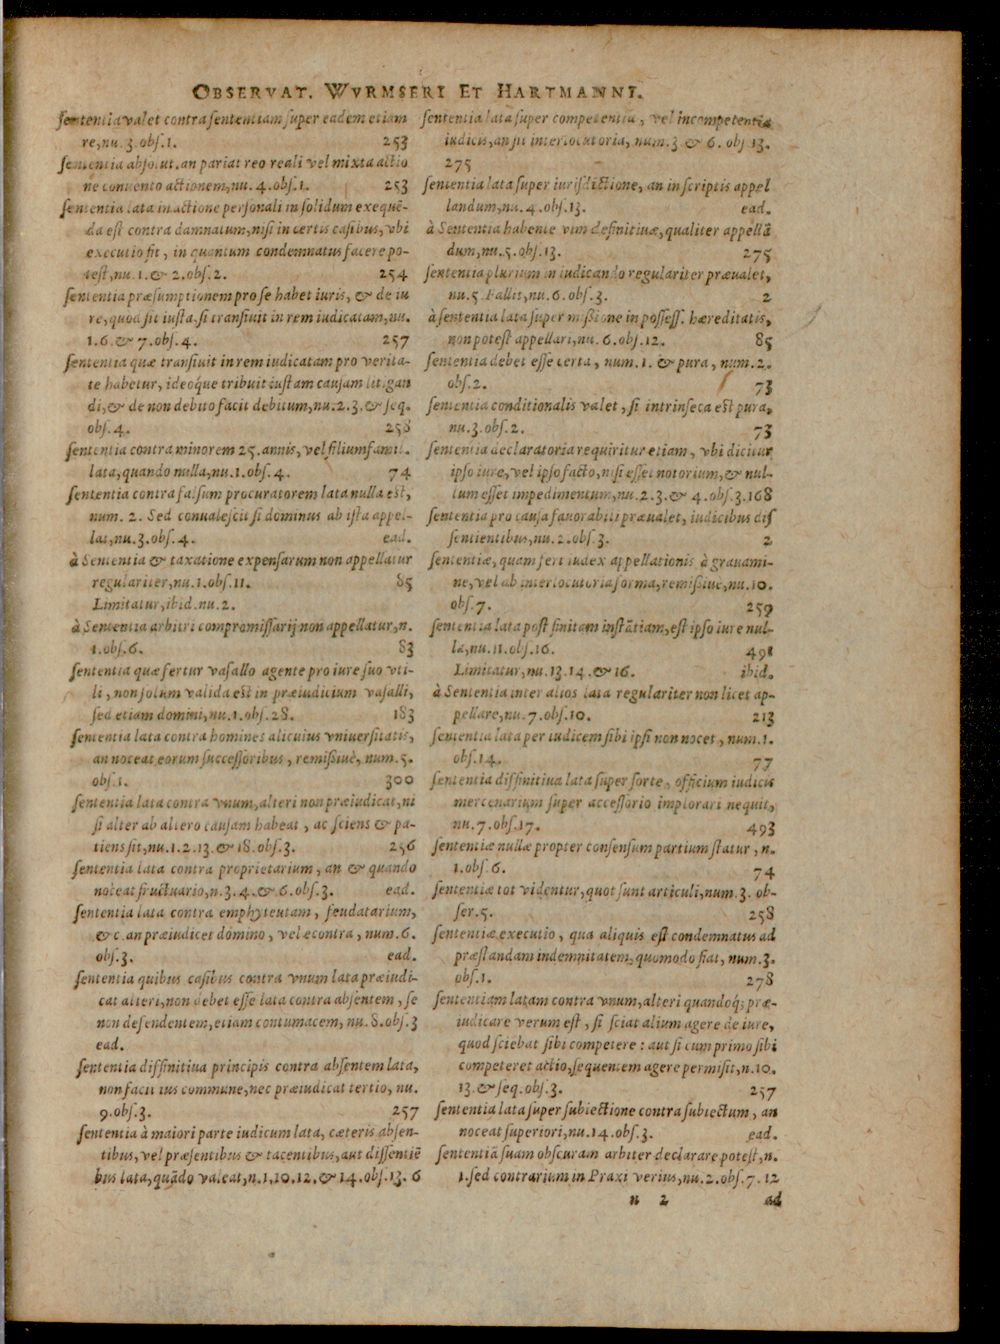 OBSERVAT. WVRMSERI ET HARTMANNI.
sententia valet contra sententiam super eadem etiam
re, nu. 3. obs. 1. 253
sententia absolut. an pariat reo reali vel mixta actio
ne conuento actionem, nu. 4. obs. 1. 253
sententia lata in actione personali in solidum exequē-
da est contra damnatum, nisi in certis casibus, vbi
executio fit, in quantum condemnatus facere po-
test, nu. 1. & 2. obs. 2. 254
sententia præsumptionem pro se habet iuris, & de iu
re, quod sit iusta, si transiuit in rem iudicatam, nu.
1. 6. & 7. obs. 4. 257
sententia quæ transiuit in rem iudicatam pro verita-
te habetur, ideoque tribuit iustam causam litigan
di, & de non debito facit debitum, nu. 2. 3. & seq.
obs. 4. 258
sententia contra minorem 25. annis, vel filiumfamil.
lata, quando nulla, nu. 1. obs. 4. 74
sententia contra falsum procuratorem lata nulla est,
num. 2. Sed conualescit si dominus ab ista appel-
lat, nu. 3. obs. 4. ead.
à Sententia & taxatione expensarum non appellatur
regulariter, nu. 1. obs. 11. 85
Limitatur, ibid. nu. 2.
à Sententia arbitri compromissarij non appellatur, n.
1. obs. 6. 83
sententia quæ fertur vasallo agente pro iure suo vti-
li, non solum valida est in præiudicium vasalli,
sed etiam domini, nu. 1. obs. 28. 183
sententia lata contra homines alicuius vniuersitatis,
an noceat eorum successoribus, remissiuè, num. 5.
obs. 1. 300
sententia lata contra vnum, alteri non præiudicat, ni
si alter ab altero causam habeat, ac sciens & pa-
tiens sit, nu. 1. 2. 13. & 18. obs. 3. 256
sententia lata contra proprietarium, an & quando
noceat fructuario, n. 3. 4. & 6. obs. 3. ead.
sententia lata contra emphyteutam, feudatarium,
&c. an præiudicet domino, vel econtra, num. 6.
obs. 3. ead.
sententia quibus casibus contra vnum lata præiudi-
cat alteri, non debet esse lata contra absentem, se
non defendentem, etiam contumacem, nu. 8. obs. 3
ead.
sententia diffinitiua principis contra absentem lata,
non facit ius commune, nec præiudicat tertio, nu.
9. obs. 3. 257
sententia à maiori parte iudicum lata, cæteris absen-
tibus, vel præsentibus & tacentibus, aut dissentiē
bus lata, quādo valeat, n. 1, 10, 12, & 14. obs. 13. 6
sententia lata super competentia, vel incompetentia
iudicis, an sit interlocutoria, num. 3 & 6. obs 13.
275
sententia lata super iurisdictione, an in scriptis appel
landum, nu. 4. obs. 13. ead.
à Sententia habente vim definitiuæ, qualiter appellā
dum, nu. 5. obs. 13. 275
sententia plurium in iudicando regulariter præualet,
nu. 5 Fallit, nu. 6. obs. 3. 2
à sententia lata super missione in possess. hæreditatis,
non potest appellari, nu. 6. obs. 12. 85
sententia debet esse certa, num. 1. & pura, num. 2.
obs. 2. 73
sententia conditionalis valet, si intrinseca est pura,
nu. 3. obs. 2. 73
sententia declaratoria requiritur etiam, vbi dicitur
ipso iure, vel ipso facto, nisi esset notorium, & nul-
lum esset impedimentum, nu. 2. 3. & 4. obs. 3. 168
sententia pro causa fauorabili præualet, iudicibus dis
sentientibus, nu. 2. obs. 3. 2
sententiæ, quam fert iudex appellationis à grauami-
ne, vel ab interlocutoria forma, remissiuè, nu. 10.
obs. 7. 259
sententia lata post finitam instātiam, est ipso iure nul-
la, nu. 11. obs. 16. 491
Limitatur, nu. 13. 14. & 16. ibid.
à Sententia inter alios lata regulariter non licet ap-
pellare, nu. 7. obs. 10. 213
sententia lata per iudicem sibi ipsi non nocet, num. 1.
obs. 14. 77
sententia diffinitiua lata super sorte, officium iudicis
mercenarium super accessorio implorari nequit,
nu. 7. obs. 17. 493
sententiæ nullæ propter consensum partium statur, n.
1. obs. 6. 74
sententiæ tot videntur, quot sunt articuli, num. 3. ob-
ser. 5. 258
sententiæ executio, qua aliquis est condemnatus ad
præstandam indemnitatem, quomodo fiat, num. 3.
obs. 1. 278
sententiam latam contra vnum, alteri quandoq; præ-
iudicare verum est, si sciat alium agere de iure,
quod sciebat sibi competere: aut si cum primo sibi
competeret actio, sequentem agere permisit, n. 10.
13. & seq. obs. 3. 257
sententia lata super subiectione contra subiectum, an
noceat superiori, nu. 14. obs. 3. ead.
sententiā suam obscuram arbiter declarare potest, n.
1. sed contrarium in Praxi verius, nu. 2. obs. 7. 12
n 2 ad